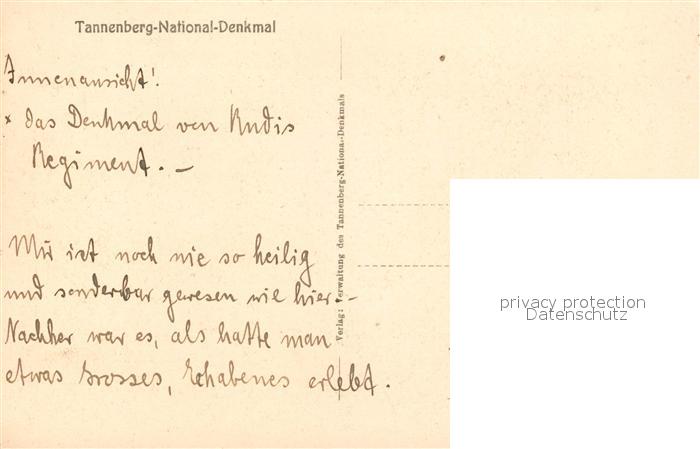 Tannenberg-National-Denkmal
Innenansicht!
x das Denkmal von Rudis
Regiment. –
Mir ist noch nie so heilig
und sonderbar gewesen wie hier –
Nachher war es, als hatte man
etwas Grosses, Erhabenes erlebt.
Verlag: Verwaltung des Tannenberg-National-Denkmals
privacy protection
Datenschutz